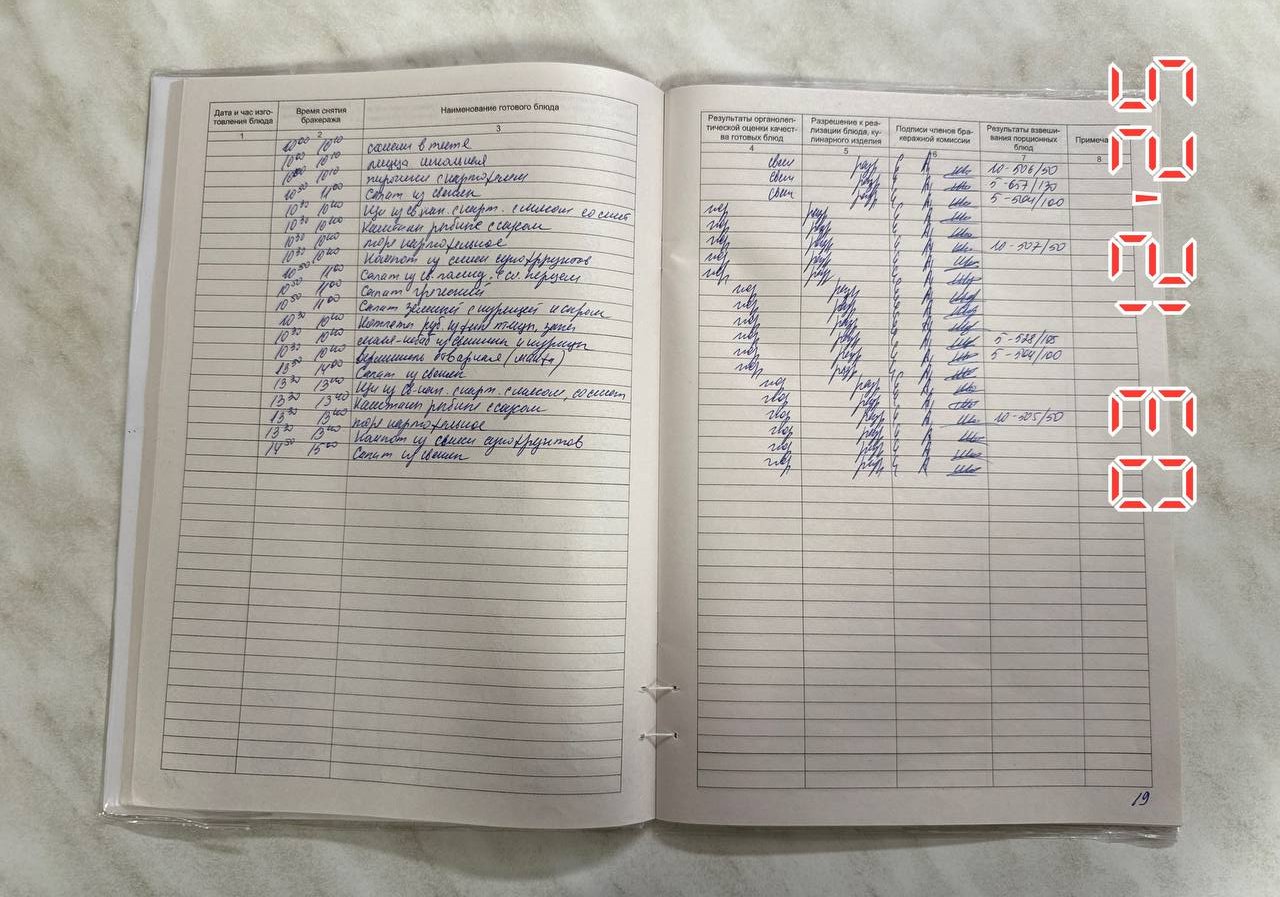 Дата и час изго-
товления блюда
Время снятия
бракеража
Наименование готового блюда
1 2 3
10 00 10 10 сосиски в тесте
10 00 10 10 пицца школьная
10 00 10 10 пирожки с картофелем
10 50 11 00 Салат из свеклы
10 30 10 40 Щи из св. кап. с карт. с мясом со смет
10 30 10 40 рыбные с сыром
10 30 10 40 пюре картофельное
10 30 10 40 Компот из смеси сухофруктов
10 50 11 00 Салат из св. помид. с сл. перцем
10 50 11 00 Салат греческий
10 50 11 00 Салат с курицей и сыром
10 30 10 40 Котлеты руб. из птицы запеч
10 30 10 40 из свинины и курицы
10 30 10 40 Вермишель отварная
13 50 14 00 Салат из свеклы
13 30 13 40 Щи из св. кап. с карт. с мясом, со смет
13 30 13 40 рыбные с сыром
13 30 13 40 пюре картофельное
13 30 13 40 Компот из смеси сухофруктов
14 50 15 00 Салат из свеклы
Результаты органолеп-
тической оценки качест-
ва готовых блюд
Разрешение к реа-
лизации блюда, ку-
линарного изделия
Подписи членов бра-
керажной комиссии
Результаты взвеши-
вания порционных
блюд
Примеча
4 5 6 7 8
разр 10-506/50
разр 5-657/130
разр 5-504/100
разр
разр
разр 10-507/50
разр
разр
разр
разр
разр
разр 5-528/105
разр 5-504/100
разр
разр
разр
разр 10-505/50
разр
разр
разр
19
03 12-'25